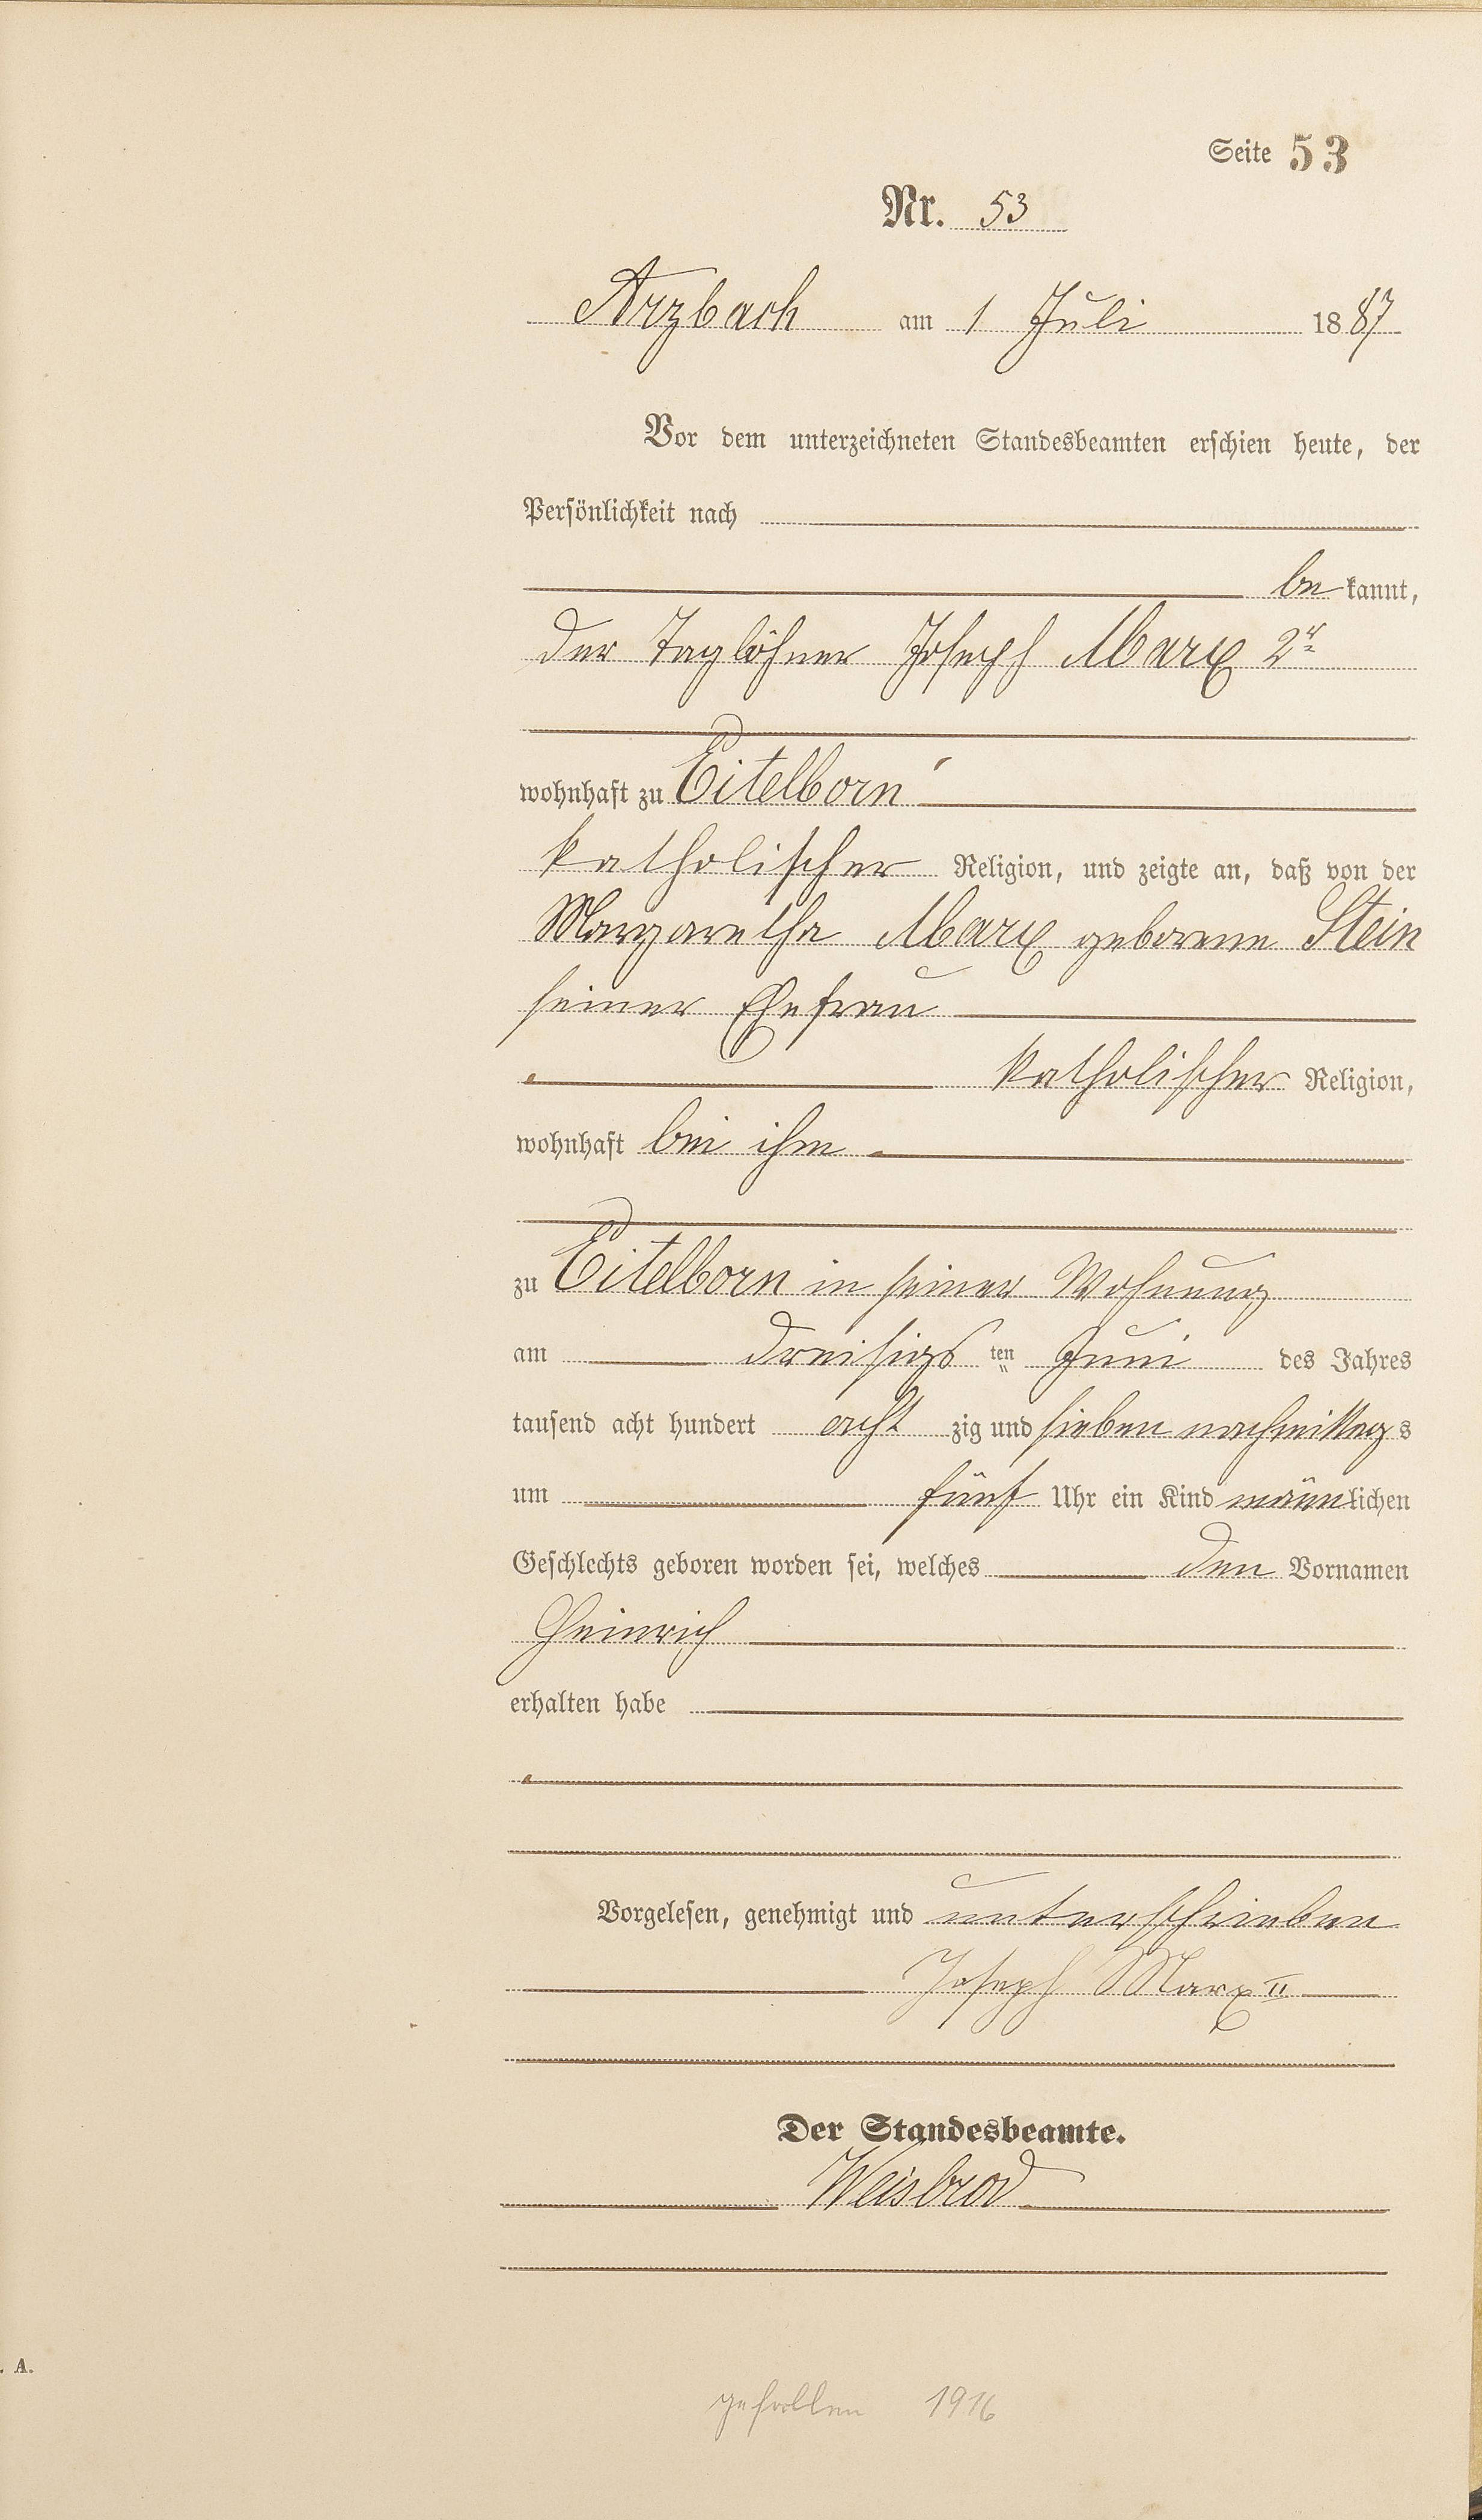 Seite 53
Nr. 53
Arzbach am 1 Juli 1887
Vor dem unterzeichneten Standesbeamten erschien heute, der
Persönlichkeit nach
bekannt,
der Taglöhner Joseph Marx 2r
wohnhaft zu Eitelborn
katholischer Religion, und zeigte an, daß von der
Margaretha Marx geborene Stein
seiner Ehefrau
katholischer Religion,
wohnhaft bei ihm
zu Eitelborn in seiner Wohnung
am dreisigsten Juni des Jahres
tausend acht hundert achtzig und sieben nachmittags
um fünf Uhr ein Kind männlichen
Geschlechts geboren worden sei, welches den Vornamen
Heinrich
erhalten habe
Vorgelesen, genehmigt und unterschrieben
Joseph Marx II
Der Standesbeamte.
Weisbrod
. A.
gefallen 1916